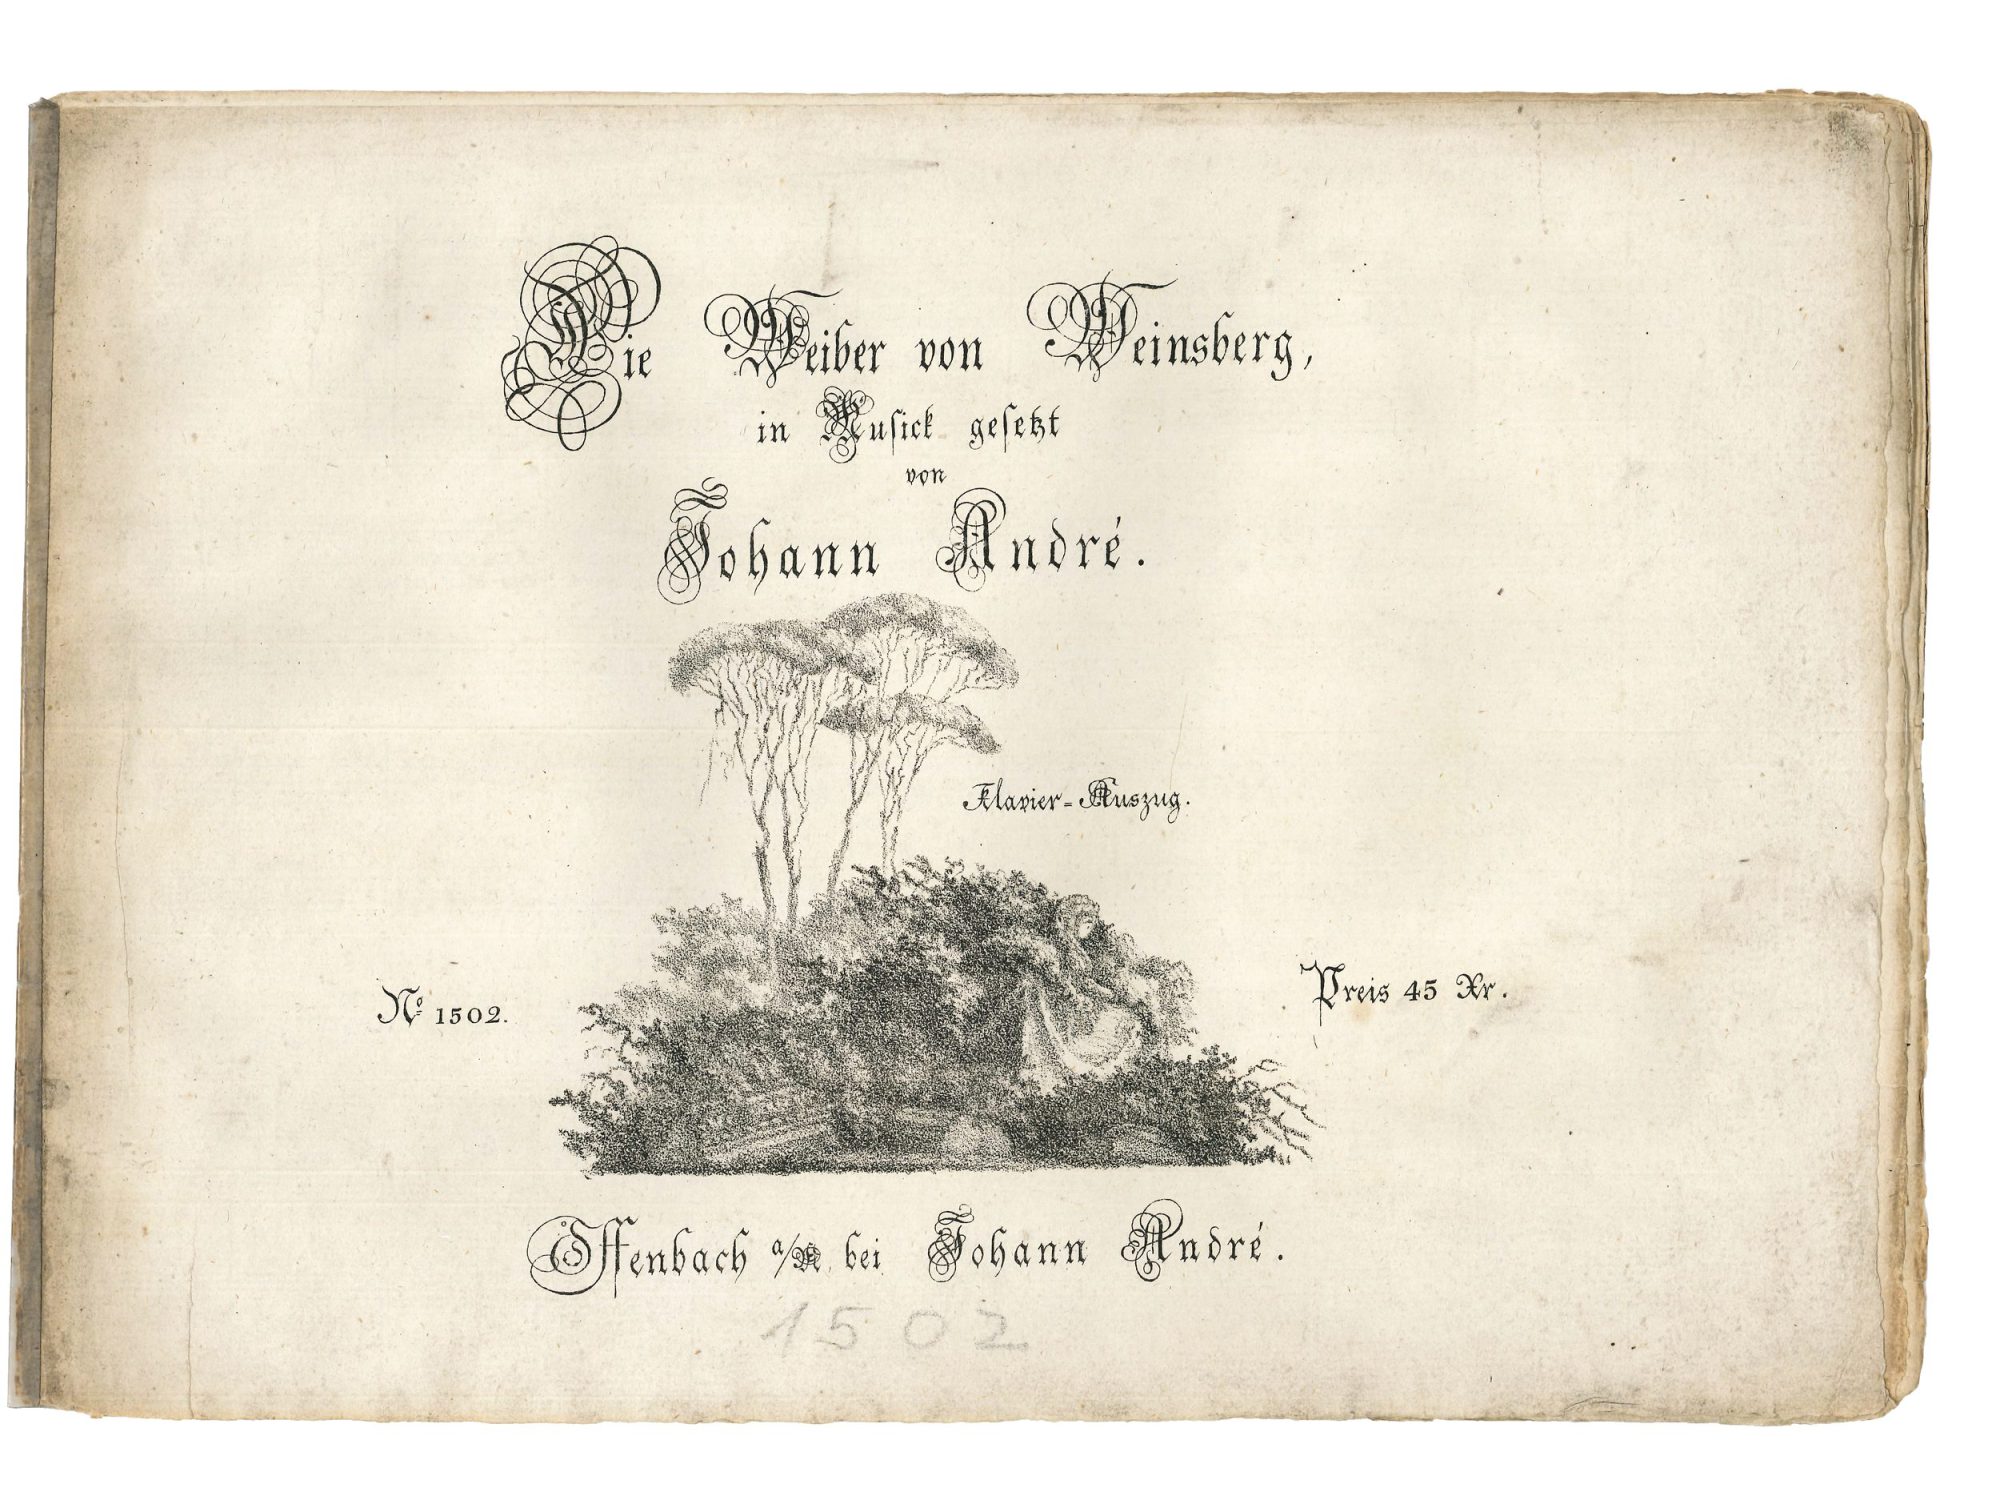 Die Weiber von Weinsberg,
in Musick gesetzt
von
Johann André.
Klavier-Auszug.
No 1502.
Preis 45 Xr.
Offenbach a/M bei Johann André.
1502